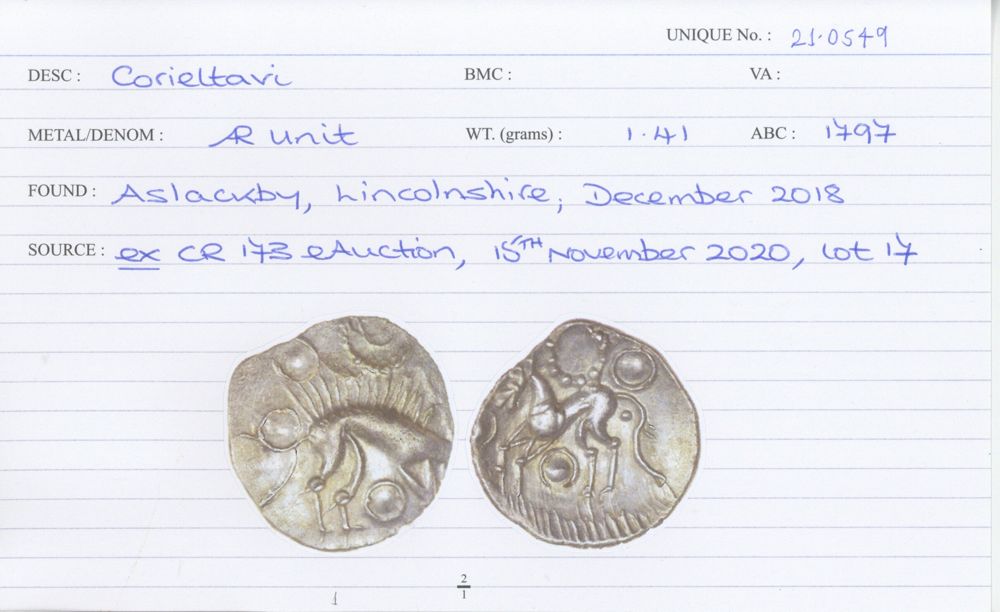 UNIQUE No. : 21.0549
DESC : Corieltavi BMC : VA :
METAL/DENOM : AR unit WT. (grams) : 1.41 ABC : 1797
FOUND : Aslackby, Lincolnshire, December 2018
SOURCE : ex CR 173 eAuction, 15TH November 2020, lot 17
2
1
1